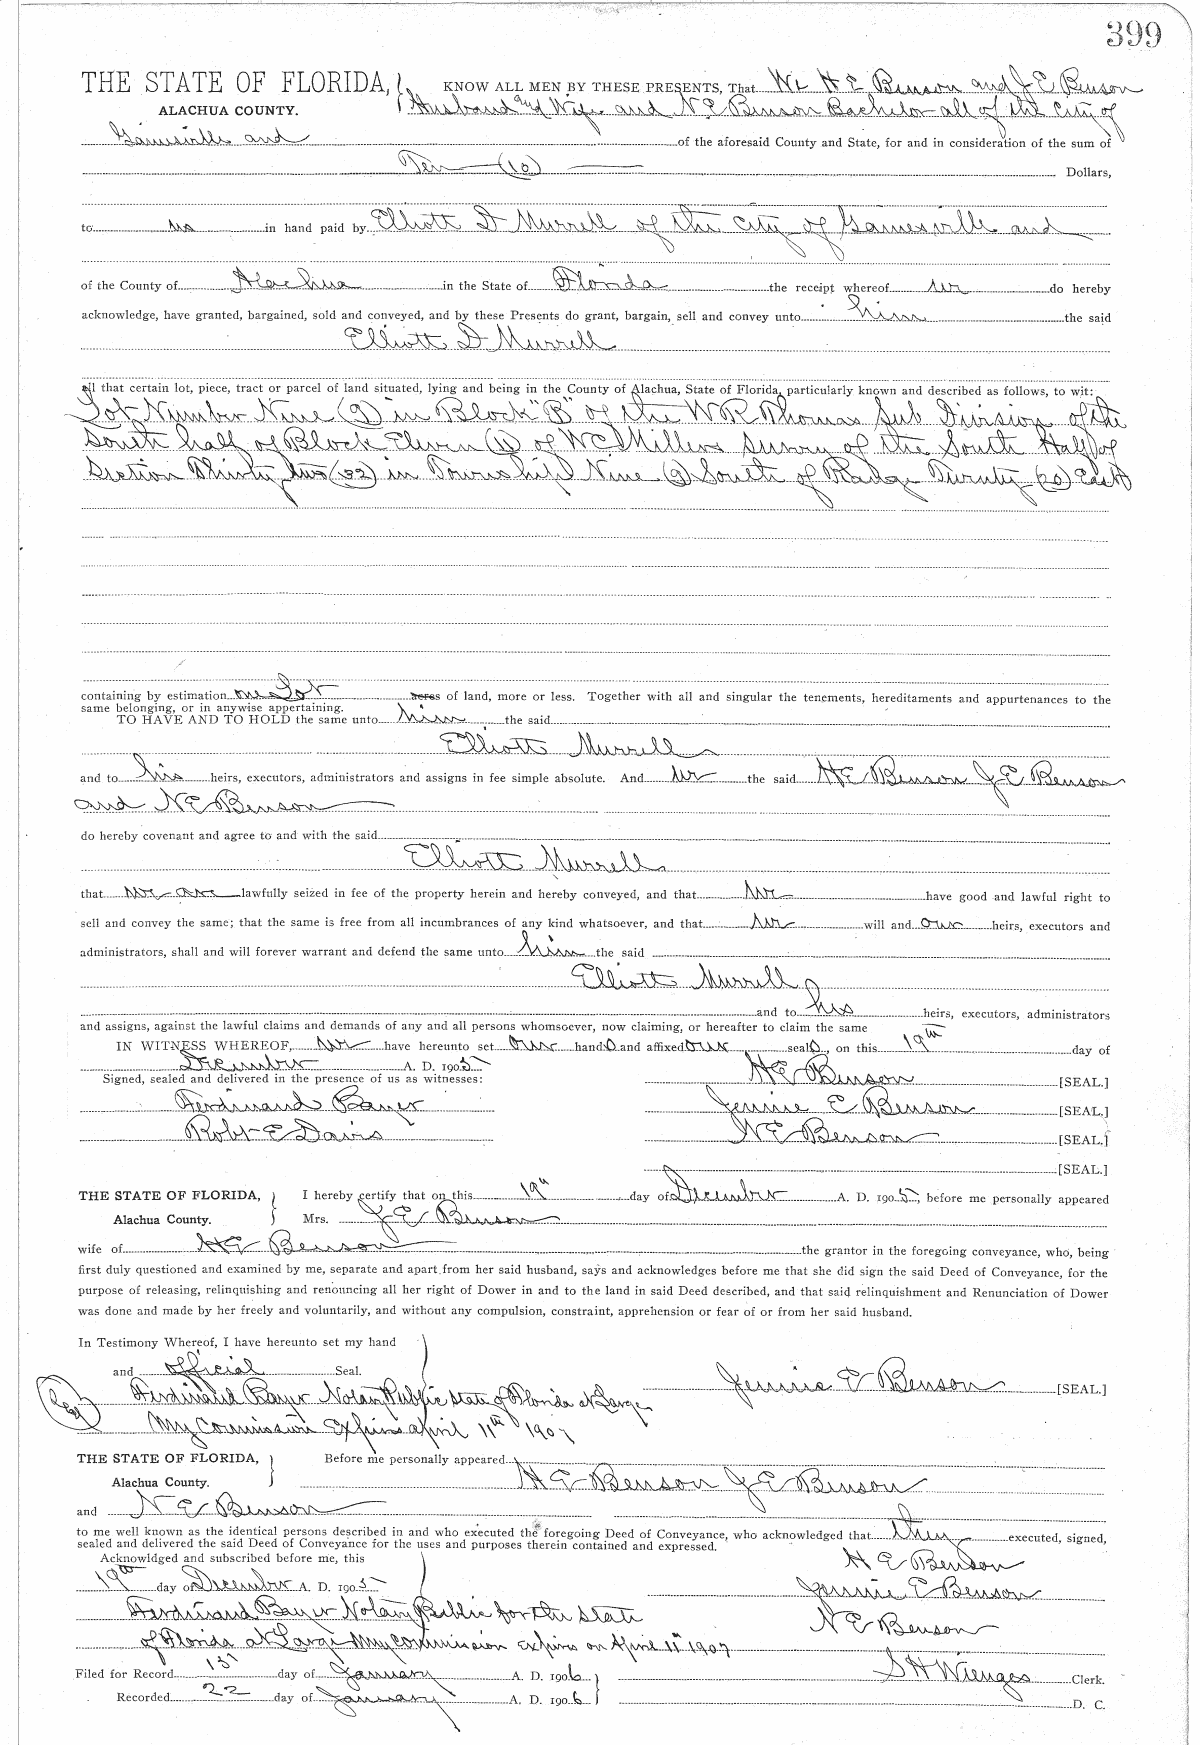 399
THE STATE OF FLORIDA, KNOW ALL MEN BY THESE PRESENTS, That We H E Benson and J E Benson
ALACHUA COUNTY. Husband and Wife and N E Benson Bachelor all of the City of
Gainesville and of the aforesaid County and State, for and in consideration of the sum of
Ten (10) Dollars,
to us in hand paid by Elliott D Murrell of the City of Gainesville and
of the County of Alachua in the State of Florida the receipt whereof we do hereby
acknowledge, have granted, bargained, sold and conveyed, and by these Presents do grant, bargain, sell and convey unto him the said
Elliott D Murrell
all that certain lot, piece, tract or parcel of land situated, lying and being in the County of Alachua, State of Florida, particularly known and described as follows, to wit:
Lot Number Nine (9) in Block "B" of the W R Thomas Sub Division of the
South half of Block Eleven (11) of W C Millers Survey of the South Half of
Section Thirty two (32) in Township Nine (9) South of Range Twenty (20) East
containing by estimation one Lot acres of land, more or less. Together with all and singular the tenements, hereditaments and appurtenances to the
same belonging, or in anywise appertaining.
TO HAVE AND TO HOLD the same unto him the said
Elliott Murrell
and to his heirs, executors, administrators and assigns in fee simple absolute. And we the said H E Benson J E Benson
and N E Benson
do hereby covenant and agree to and with the said
Elliott Murrell
that we are lawfully seized in fee of the property herein and hereby conveyed, and that we have good and lawful right to
sell and convey the same; that the same is free from all incumbrances of any kind whatsoever, and that we will and our heirs, executors and
administrators, shall and will forever warrant and defend the same unto him the said
Elliott Murrell
and to his heirs, executors, administrators
and assigns, against the lawful claims and demands of any and all persons whomsoever, now claiming, or hereafter to claim the same
IN WITNESS WHEREOF, we have hereunto set our hands and affixed our seals, on this 19th day of
December A. D. 1905
H E Benson [SEAL.]
Signed, sealed and delivered in the presence of us as witnesses:
Ferdinand Bayer Jennie E Benson [SEAL.]
Robt E Davis N E Benson [SEAL.]
[SEAL.]
THE STATE OF FLORIDA, I hereby certify that on this 19th day of December A. D. 1905, before me personally appeared
Alachua County. Mrs. J E Benson
wife of H E Benson the grantor in the foregoing conveyance, who, being
first duly questioned and examined by me, separate and apart from her said husband, says and acknowledges before me that she did sign the said Deed of Conveyance, for the
purpose of releasing, relinquishing and renouncing all her right of Dower in and to the land in said Deed described, and that said relinquishment and Renunciation of Dower
was done and made by her freely and voluntarily, and without any compulsion, constraint, apprehension or fear of or from her said husband.
In Testimony Whereof, I have hereunto set my hand
and official Seal.
Jennie E Benson [SEAL.]
Seal Ferdinand Bayer Notary Public State of Florida at Large
My Commission Expires April 11th 1907
THE STATE OF FLORIDA, Before me personally appeared
Alachua County. H E Benson J E Benson
and N E Benson
to me well known as the identical persons described in and who executed the foregoing Deed of Conveyance, who acknowledged that they executed, signed,
sealed and delivered the said Deed of Conveyance for the uses and purposes therein contained and expressed.
Acknowldged and subscribed before me, this H E Benson
19th day of December A. D. 1905 Jennie E Benson
Ferdinand Bayer Notary Public for the State N E Benson
of Florida at Large My Commission expires on April 11th 1907
Filed for Record 15 day of January A. D. 1906 S H Wienges Clerk.
Recorded 22 day of January A. D. 1906 D. C.